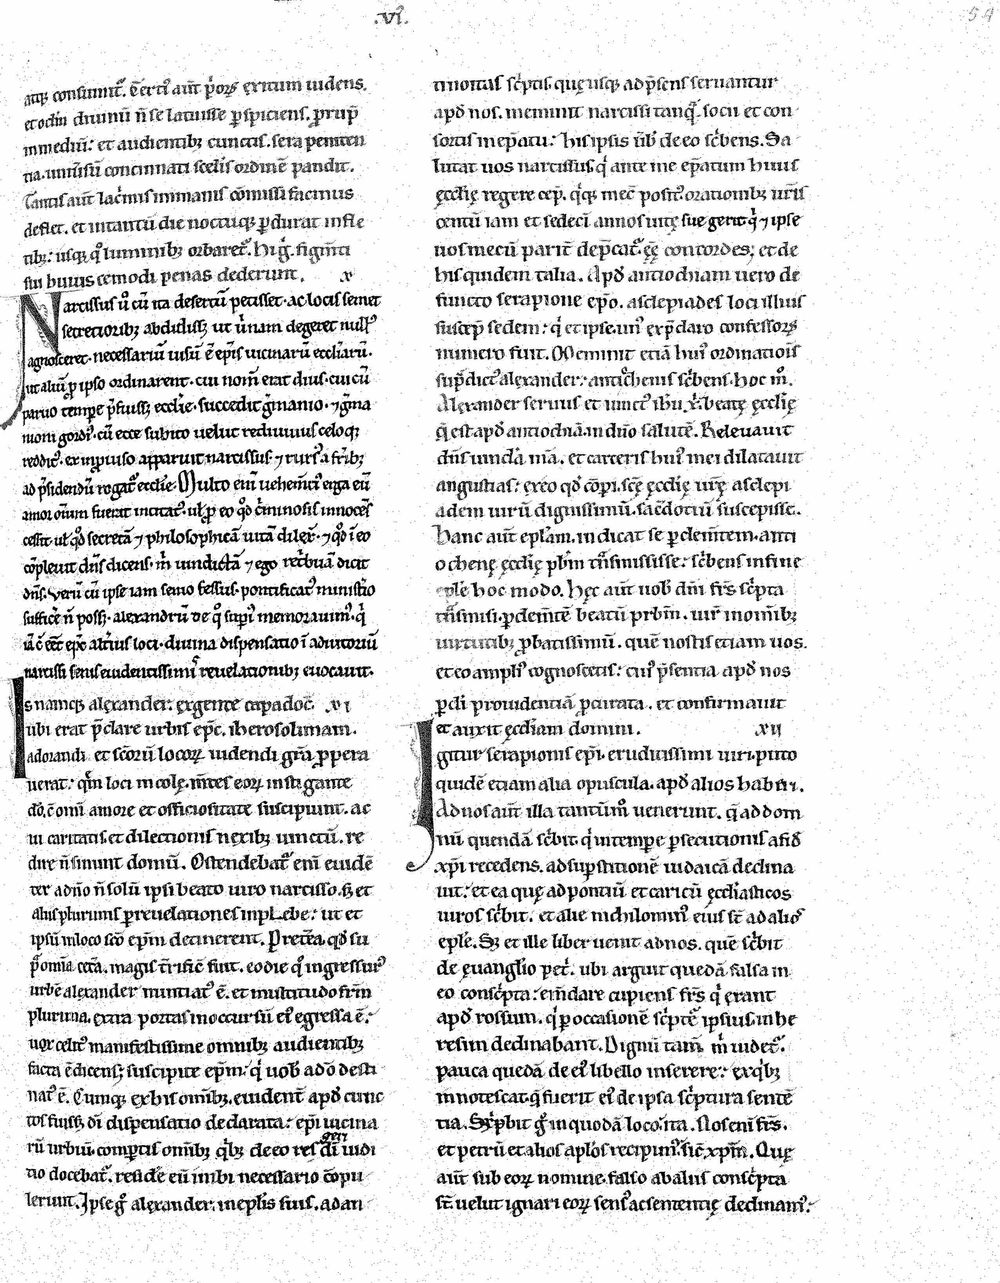 .VI.
54
atq; consumit᷑. Cert᷑ aut̄ p̄orꝝ exitum uidens.
et oc̄lm diuinū n̄ se latuisse ꝑspiciens. ꝓrup̄
in mediū: et audientibꝫ cunctis. sera peniten
tia. uniūsū concinnati scel̄is ordinē pandit.
Tantis aut̄ lac̓mis inmanis cōmissi facinus
deflet. et intantū die noctuq; ꝑdurat infle
tibꝫ: usq; q̊ luminibꝫ orbaret᷑. Hi g̓. figm̄ti
sui huiuscemodi penas dederunt. x
Narcissus u̓ cū ita desertū petisset. ac locis semet
secretioribꝫ abdidissꝫ ut ūnam degeret null᷒
agnosceret. necessariū uisū ē ep̄is uicinarū eccl̄iarū.
ut aliū ꝓ ipso ordinarent. cui nom̄ erat dius. cui cū
paruo tempe p̄fuissꝫ eccl̄ie. succedit g̓manio. ⁊ g̓ma
nioni gordi᷒. cū ecce subito uelut rediuiuus celoq;
reddit᷒. ex inꝓuiso apparuit narcissus. ⁊ rurs᷒ a fr̄ibꝫ
ad p̄sidendū rogat᷑ eccl̄ie. Multo eni᷑ uehem̄ti᷒ erga eū
amor omnium fuerat incitat᷒. ul̓ ꝓ eo q̊d c̓minosis innocēs
cessit. ul̓ q̊d secretā ⁊ philosophicā uitā dilex̄. ⁊ q̊d ī eo
cōpleuit dn̄s dicens. m̓ uindictā ⁊ ego ret̓buā dicit
dn̄s. Verū cū ipse iam senio fessus. pontificat᷒ ministio
sufficē n̄ possꝫ. alexandrū de q̊ sup̓i᷒ memorauim᷒. q̓
iā ē eēt ep̄c alt̓ius loci. diuina dispensatio ī adiutoriū
narcissi seruis euidentissim̓ reuelationibꝫ euocauit.
Is namq; alexander. exgente capadoc̄. xi
ubi erat p̄clare urbis ep̄c. iherosolimam.
adorandi et sc̄orū locorꝝ uidendi gr̄a ꝓpera
uerat: q̄m loci incolę. m̄tes eorꝝ instigante
dō. cū omī amore et officiositate suscipiunt. ac
ui caritatis. et dilectionis nexibꝫ uinctū. re
dire n̄ sinunt domū. Ostendebat᷑ eni᷑ euidē
ter adn̄o n̄ solū ipsi beato uiro narcisso. sꝫ et
aliis plurimis ꝑreuelationes inplebe: ut et
ipsū in loco sc̄o ep̄m detinerent. Pretēa qd̓ sū
ꝑ omia cēta. magis t̓rificē fuit. eo die q̊ ingressur᷒
urbē alexander nuntiat᷒ ē. et multitudo fr̄m
plurima. extra portas in occursū ei᷒ egressa ē.
uox celit᷒ manifestissime omnibꝫ audientibꝫ
facta ē dicens; suscipite ep̄m. q̓ uob̄ ad̄o desti
nat᷒ ē. Cumq; ex his om̄ibꝫ. euidenti ap̄d cunc
tos fuissꝫ. dī dispensatio declarata: ep̄i uicina
rū urbiū. comptis om̄ibꝫ q̓bꝫ deeo res gen̄ dī iudi
tio docebat᷑. residē eū inibi necessario cōpu
lerunt. Ipse g̊ alexander. inep̄lis suis. adan
tinoitas sc̓ptis. quę usq; ad p̄sens seruantur
ap̄d nos. meminit narcissi tanq̄. socii et con
sortis inep̄atu: his ipsis ūb̄ deeo sc̓bens. Sa
lutat uos narcissus. q̓ ante me ep̄atum huius
ęccl̄ię regere cep̄. q̓q; mec̄ posit᷒. orationibꝫ ur̄is
centū iam et sedeci annos uite sue gerit q̓ ⁊ ipse
uos mecū parit̓ dep̄cat᷑. eē concordes; et de
his quidem talia. Ap̄d antiochiam uero de
functo serapione ep̄o. asclepiades loci illius
suscep̄ sedem: q̓ et ipse. in᷑ exp̄claro confessorꝝ
numero fuit. Meminit etiā hui᷒ ordinatiois
sup̄dict᷒ alexander: antioc̓henis sc̓bens. hoc m̊.
Alexander seruus et uinct᷒ ih̄u x̄. beatę ęccl̄ię
q̄ est ap̄d antiochiā. in dn̄o salutē. Releuauit
dn̄s uincl̄a m̄a. et carceris hui᷒ mei dilatauit
angustias: exeo qd̓ cōp̄i. sc̄ę ęccl̄ię ur̄ę asclepi
adem uirū dignissimū. sac̄dotiū suscepisse.
Hanc aut̄ ep̄lam. indicat se ꝑclem̄tem. anti
ochenę ęccl̄ię p̄bm t̓nsmisisse: sc̓bens infine
ep̄le hoc modo. Hęc aut̄ uob̄ dn̄i fr̄s sc̓pta
t̓nsmisi. ꝑclem̄tē beatū prb̄m. uir᷑ inom̄ibꝫ
uirtutibꝫ ꝓbatissimū. quē nostis etiam uos.
et eo ampli᷒ cognoscetis: cui᷒ p̄sentia ap̄d nos
ꝑdī prouidentiā ꝑcurata. et confirmauit
et auxit ęccl̄iam domini. xii
Igitur serapionis ep̄i. eruditissimi uiri. puto
quidē etiam alia opuscula. ap̄d alios haberi.
Ad nos aut̄ illa tantūm̊ uenerunt. q̄ ad dom
nū quendā sc̓bit. q̓ intempe psecutionis afid̄
xp̄i recedens. adsupstitionē iudaicā declina
uit: et ea quę ad pontiū et caricū ęccl̄iasticos
uiros sc̓bit. et alie nichilomin᷒ eius st̄ ad alios
ep̄le. Sꝫ et ille liber uenit adnos. quē sc̓bit
de ęuanglio pet᷑. ubi arguit quedā falsa in
eo consc̓pta: em̄dare cupiens fr̄s q̓ erant
ap̄d rossum. q̓ ꝑ occasionē sc̓ptē ipsius. in he
resim declinabant. Dignū tam̄ m̓ uidet᷑.
pauca quedā de ei᷒ libello inserere: exq̓bꝫ
innotescat. q̄ fuerit ei᷒ de ipsa sc̓ptura sentē
tia. Sc̓pbit g̊ in quodā loco. ita. Nos eni᷑ fr̄s.
et petrū et alios aplōs recipim᷒. sic̄ xp̄m. Quę
aut̄ sub eorꝝ nomine. falso ab aliis consc̓pta
st̄. uelut ignari eorꝝ sens᷒ ac sententię declinam᷒: